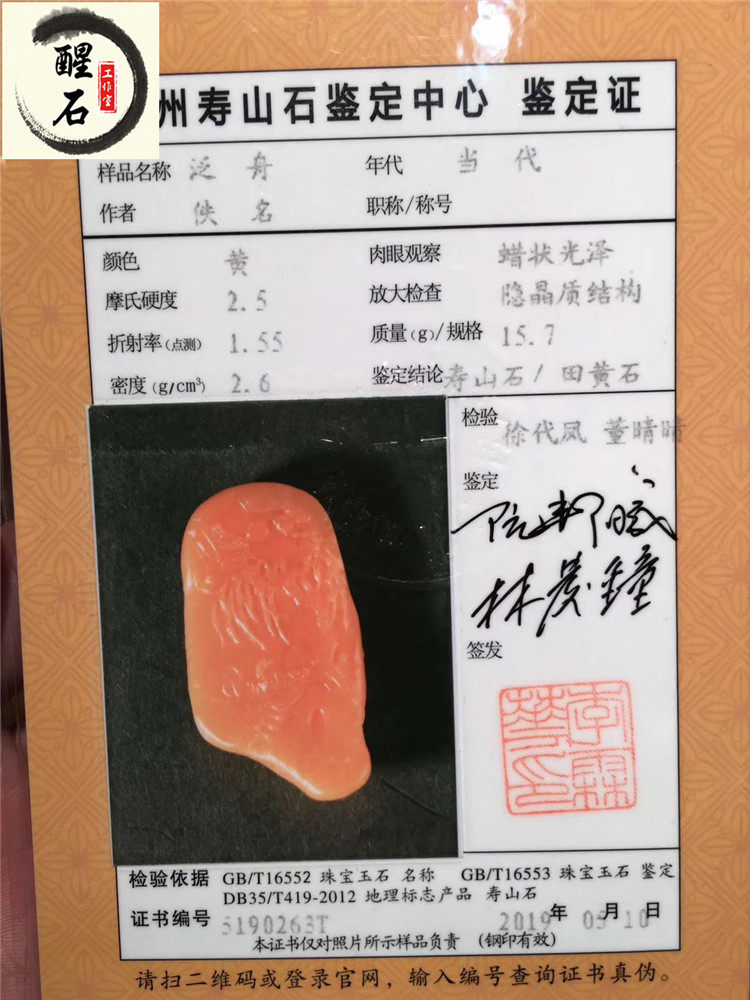 醒石
工作室
州寿山石鉴定中心 鉴定证
样品名称 泛舟 年代 当代
作者 佚名 职称/称号
颜色 黄 肉眼观察 蜡状光泽
摩氏硬度 2.5 放大检查 隐晶质结构
折射率(点测) 1.55 质量(g)/规格 15.7
密度(g/cm³) 2.6 鉴定结论 寿山石/田黄石
检验 徐代凤 董晴晴
鉴定
签发
检验依据 GB/T16552 珠宝玉石 名称 GB/T16553 珠宝玉石 鉴定
DB35/T419-2012 地理标志产品 寿山石
证书编号 5190263T 2019年 05月10日
本证书仅对照片所示样品负责 (钢印有效)
请扫二维码或登录官网，输入编号查询证书真伪。